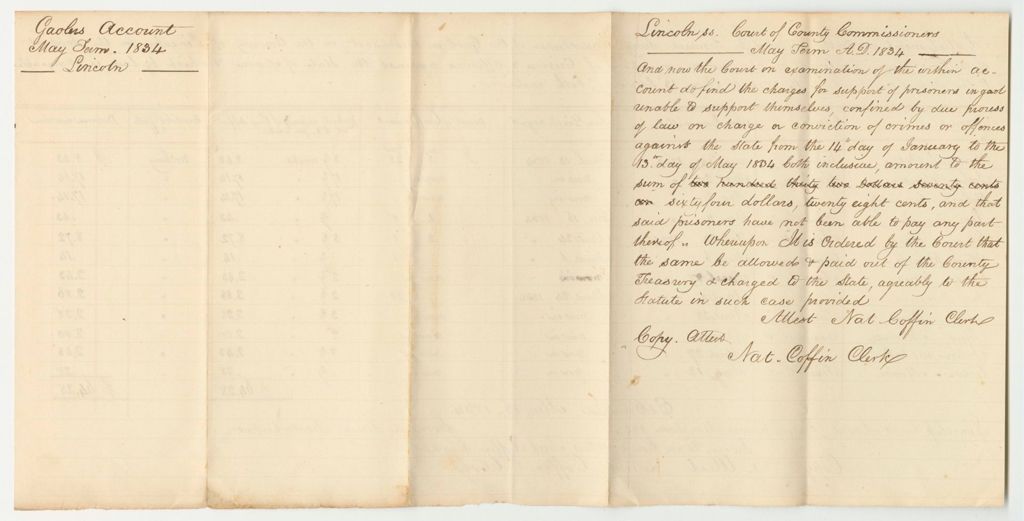 Gaolers Account
May Term. 1834
Lincoln
Lincoln ss. Court of County Commissioners
May Term A.D. 1834
And now the Court on examination of the within ac-
count do find the charges for support of prisoners in gaol
unable to support themselves, confined by due process
of law on charge or conviction of crimes or offences
against the State from the 14th day of January to the
13th day of May 1834 both inclusive, amount to the
sum of two hundred thirty two dollars seventy cents
or sixty four dollars, twenty eight cents, and that
said prisoners have not been able to pay any part
thereof. Whereupon It is Ordered by the Court that
the same be allowed & paid out of the County
Treasury & charged to the State, agreably to the
Statute in such case provided
Attest Nat Coffin Clerk
Copy. Attest
Nat. Coffin Clerk